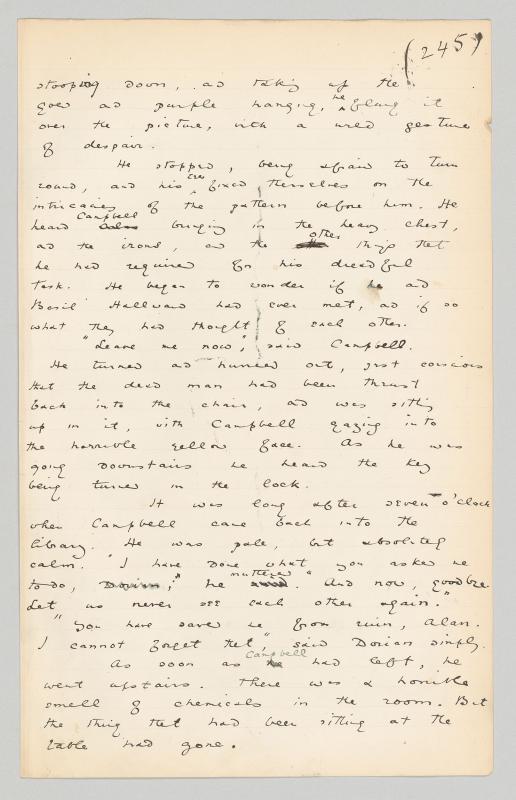 (245)
stooping down, and taking up the
gold and purple hanging, he flung it
over the picture, with a wild gesture
of despair.
He stopped, being afraid to turn
round, and his eyes fixed themselves on the
intricacies of the pattern before him. He
heard Campbell bringing in the heavy chest,
and the irons, and the other things that
he had required for his dreadful
task. He began to wonder if he and
Basil Hallward had ever met, and if so
what they had thought of each other.
"Leave me now", said Campbell.
He turned and hurried out, just conscious
that the dead man had been thrust
back into the chair, and was sitting
up in it, with Campbell gazing into
the horrible yellow face. As he was
going downstairs he heard the key
being turned in the lock.
It was long after seven o'clock
when Campbell came back into the
library. He was pale, but absolutely
calm. "I have done what you asked me
to do, Dorian," he muttered. "And now, goodbye.
Let us never see each other again."
"You have saved me from ruin, Alan.
I cannot forget that", said Dorian simply.
As soon as Campbell had left, he
went upstairs. There was a horrible
smell of chemicals in the room. But
the thing that had been sitting at the
table had gone.